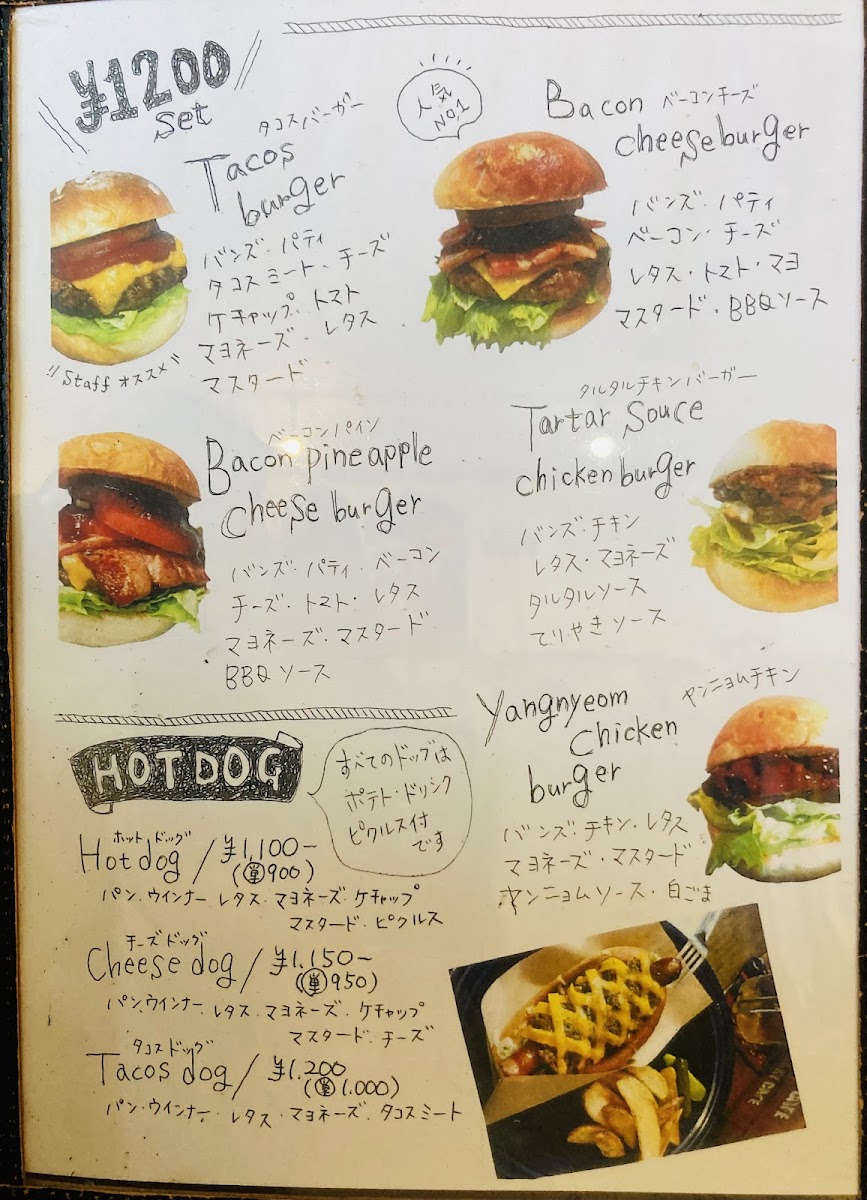 ¥1200
Set
タコスバーガー
Tacos
burger
バンズ・パティ
タコスミート・チーズ
ケチャップ・トマト
マヨネーズ・レタス
マスタード
Staff オススメ
人気
NO.1
Bacon ベーコンチーズ
cheeseburger
バンズ・パティ
ベーコン・チーズ
レタス・トマト・マヨ
マスタード・BBQソース
ベーコンパイン
Bacon pineapple
cheese burger
バンズ・パティ・ベーコン
チーズ・トマト・レタス
マヨネーズ・マスタード
BBQソース
タルタルチキンバーガー
Tartar Souce
chicken burger
バンズ・チキン
レタス・マヨネーズ
タルタルソース
てりやきソース
Yangnyeom ヤンニョムチキン
Chicken
burger
バンズ・チキン・レタス
マヨネーズ・マスタード
ヤンニョムソース・白ごま
HOTDOG
すべてのドッグは
ポテト・ドリンク
ピクルス付
です
ホットドッグ
Hotdog / ¥1,100-
(単900)
パン・ウインナー レタス・マヨネーズ・ケチャップ
マスタード・ピクルス
チーズドッグ
Cheese dog / ¥1.150-
(単950)
パン・ウインナー レタス・マヨネーズ・ケチャップ
マスタード・チーズ
タコスドッグ
Tacos dog / ¥1.200
(単1.000)
パン・ウインナー・レタス・マヨネーズ・タコスミート